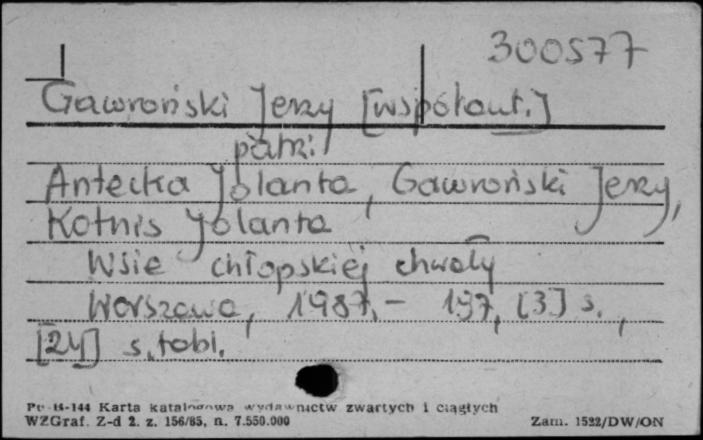 300577
Gawroński Jerzy [współaut.]
patrz:
Antecka Jolanta, Gawroński Jerzy,
Kotnis Jolanta
Wsie chłopskiej chwały
Warszawa, 1987. - 197, [3] s.,
[24] s. tabl.
Pu-K-144 Karta katalogowa wydawnictw zwartych i ciągłych
WZGraf. Z-d 2. z. 156/85, n. 7.550.000 Zam. 1522/DW/ON